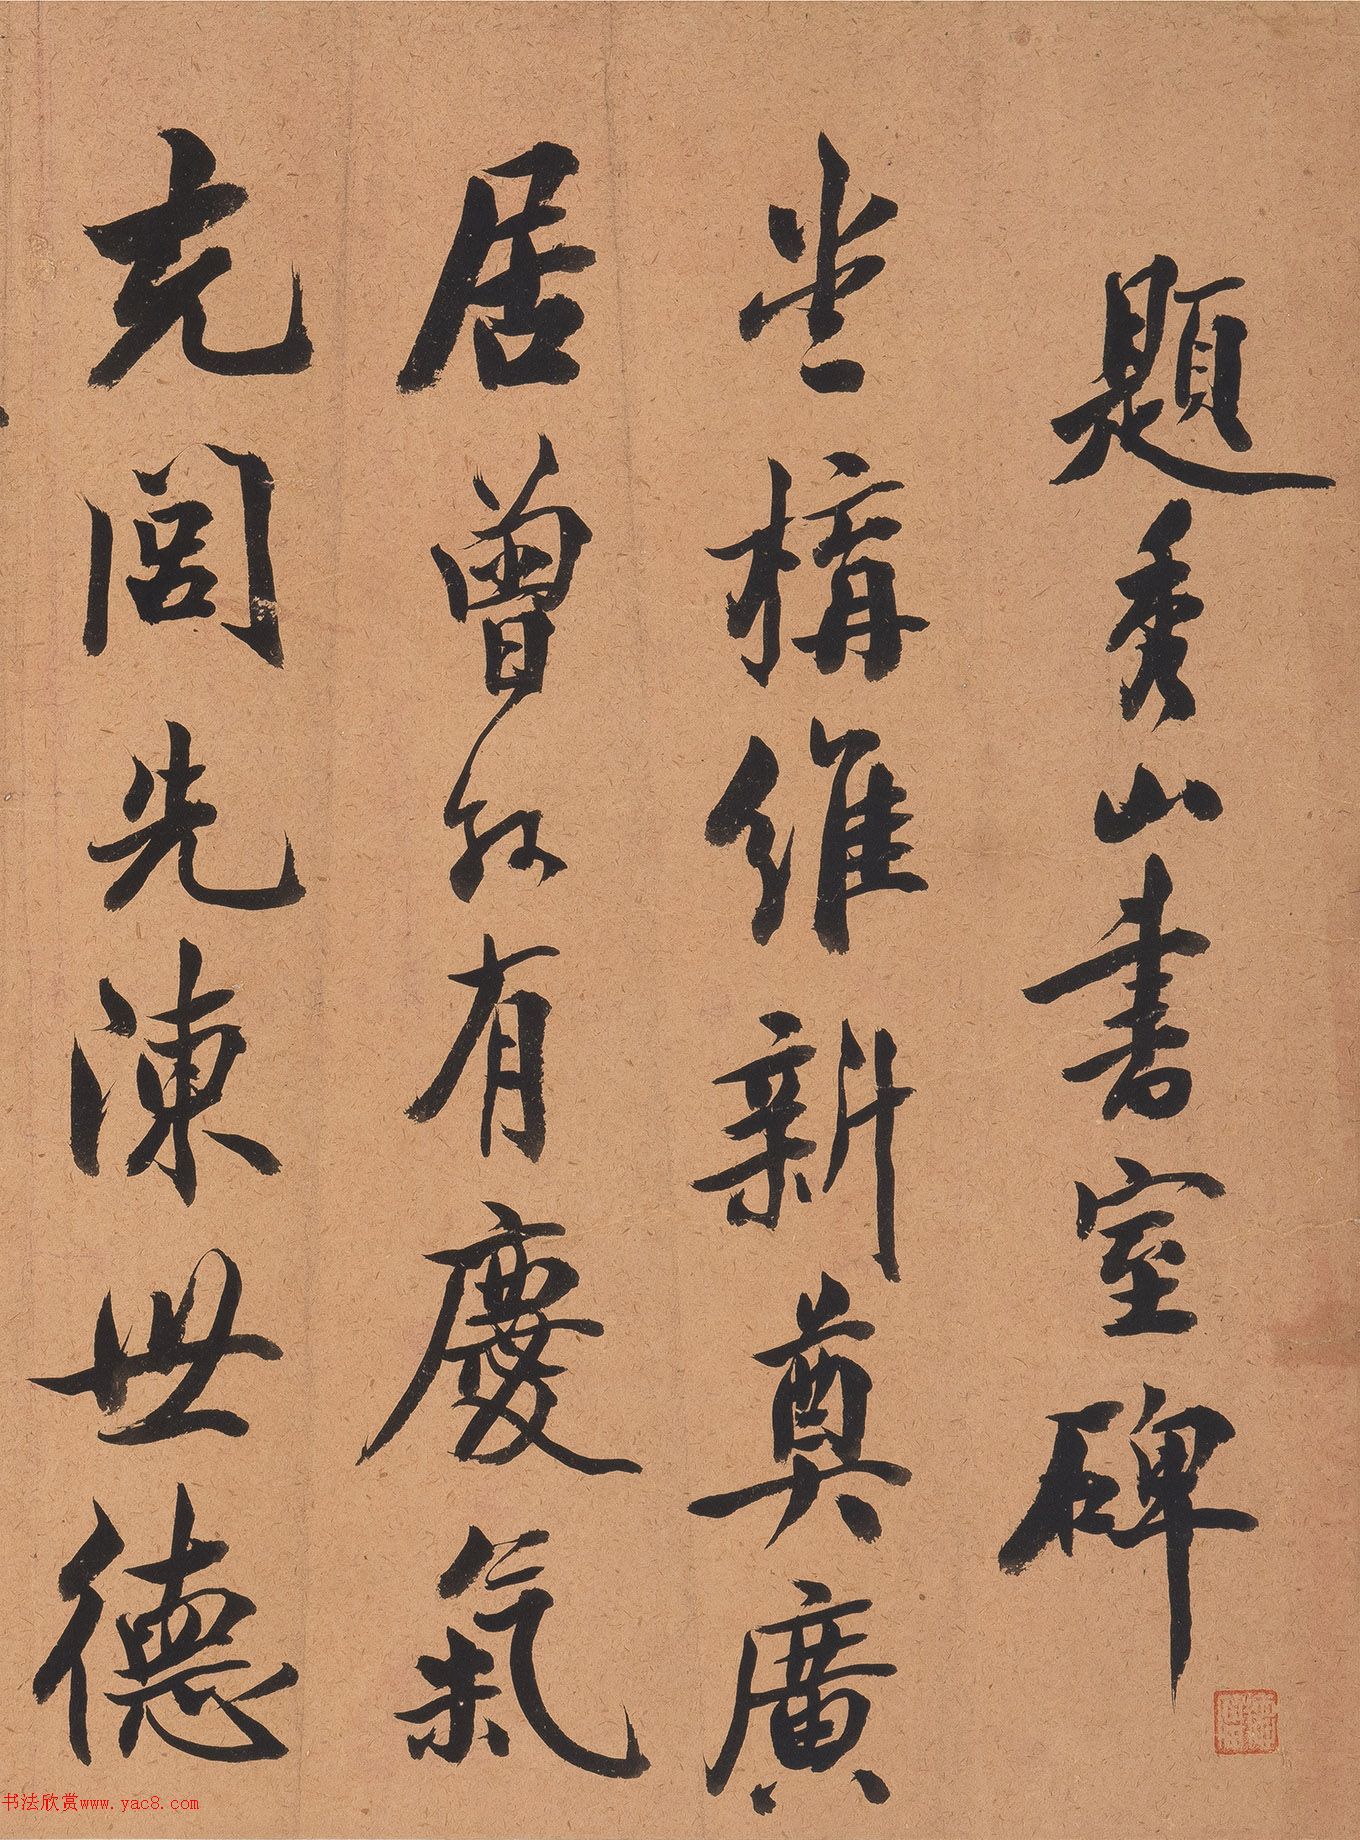 題秀山書室碑
堂構維新奠廣
居曾知有慶氣
充閭先陳世德
书法欣赏www.yac8.com